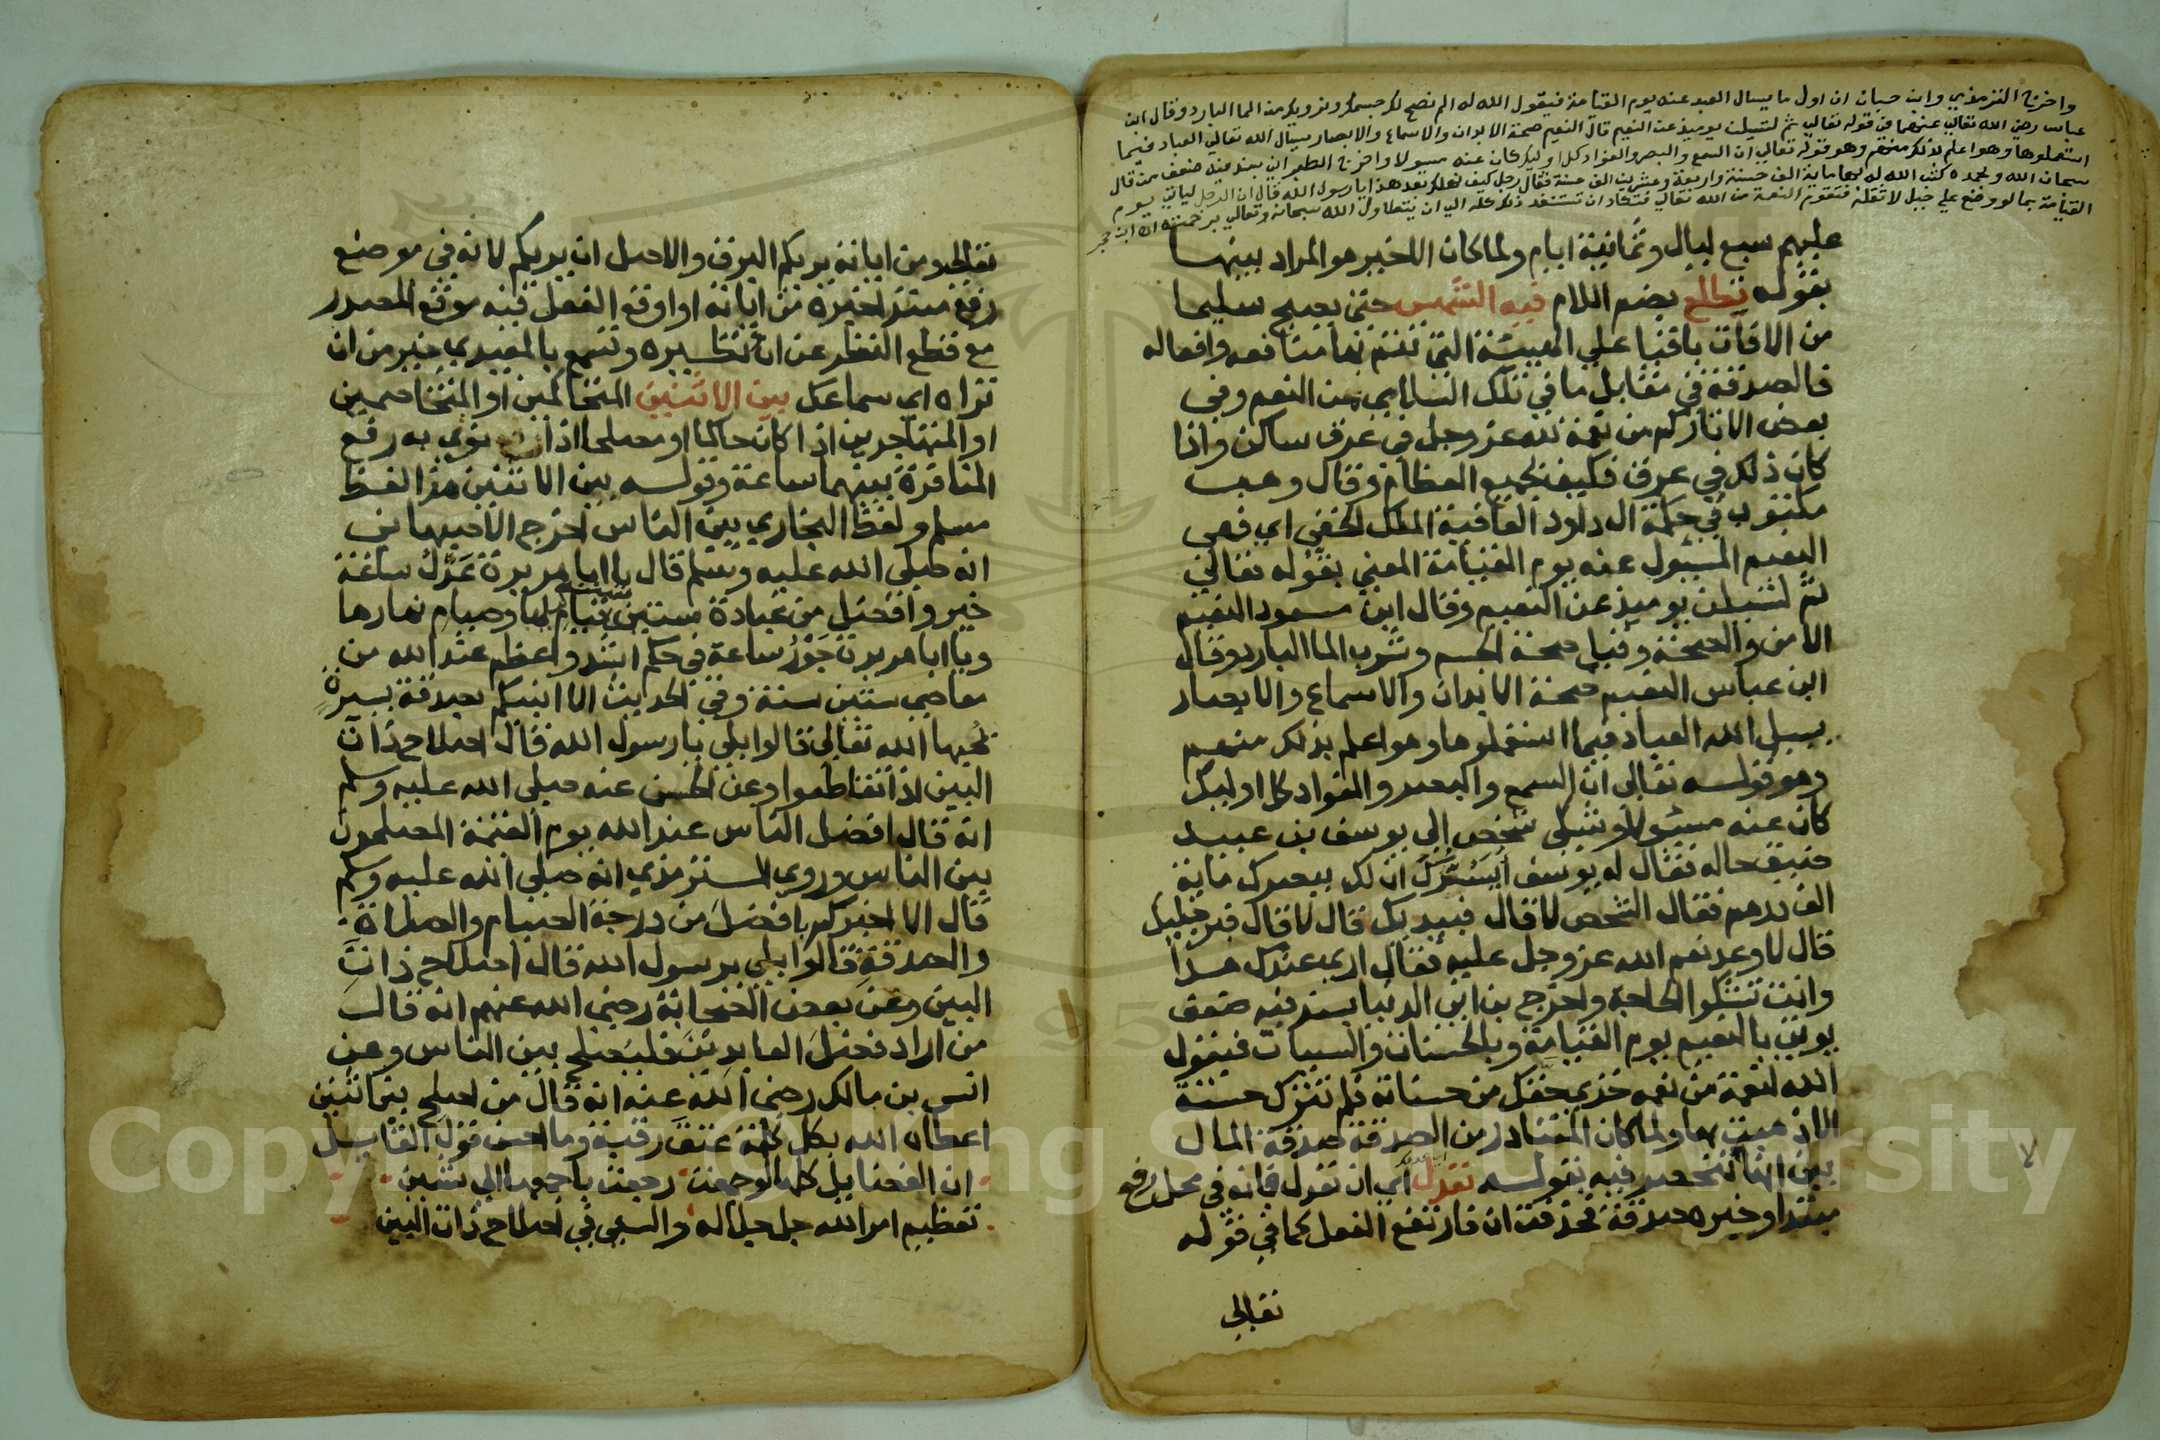 واخرج الترمذي وابن حبان ان اول ما يسال العبد عنه يوم القيامة فيقول الله له الم نصح لك جسمك ونرويك من الما البارد وقال ابن
عباس رضي الله تعالي عنهما في قوله تعالي ثم لتسيلن يوميذ عن النعيم قال النعيم صحة الابدان والاسماع والابصار يسال الله تعالي العباد فيما
استعملوها وهو اعلم بذلك منهم وهو قوله تعالي ان السمع والبصر والفواد كل اوليك كان عنه مسولا واخرج الطبراني بسند فيه ضعف من قال
سبحان الله وبحمده كتب الله له بها ماية الف حسنة واربعة وعشرين الف حسنة فقال رجل كيف نهلك بعد هذا يا رسول الله قال ان الرجل لياتي يوم
القيامة بما لو وضع علي جبل لاثقله فتقوم النعمة من الله تعالي فتكاد ان تستنفد ذلك كله الي ان يتطاول الله سبحانه وتعالي برحمته اه ابن حجر
عليهم سبع ليال وثمانية ايام ولما كان الاخير هو المراد بينها
بقوله تطلع بضم اللام فيه الشمس حتي يصبح سليما
من الافات باقيا علي الهيئة التي تتم بها منافعه وافعاله
فالصدقة في مقابل ما في تلك السلامي من النعم وفي
بعض الاثار كم من نعمة لله عز وجل في عرق ساكن واذا
كان ذلك في عرق فكيف بجميع العظام وقال وهب
مكتوب في حكمة ال داود العافية الملك الخفي اي فهي
النعيم المسئول عنه يوم القيامة المعني بقوله تعالي
ثم لتسيلن يوميذ عن النعيم وقال ابن مسعود النعيم
الامن والصحة وقيل صحة الجسم وشرب الما البارد وقال
ابن عباس النعيم صحة الابدان والاسماع والابصار
يسيل الله العباد فيما استعملوها وهو اعلم بذلك منهم
وهو قوله تعالي ان السمع والبصر والفواد كل اوليك
كان عنه مسئولا وشكي شخص الي يوسف بن عبيد
ضيق حاله فقال له يوسف ايسرك ان لك ببصرك ماية
الف درهم فقال الشخص لا قال فبيديك قال لا قال فبرجليك
قال لا وعد نعم الله عز وجل عليه فقال اري عندك هذا
وانت تشكوا الحاجة واخرج بن ابي الدنيا بسند فيه ضعف
يوتي بالنعيم يوم القيامة وبالحسنات والسيات فيقول
الله لنعمة من نعمه خذي حقك من حسناته فلم تترك حسنة
الا ذهبت بها ولما كان المتبادر من الصدقة صدقة المال
بين انها تنحصر فيه بقوله تعدل اي ان تعدل فانه في محل رفع
مبتدا وخبره صدقة فحذفت ان فارتفع الفعل كما في قوله
تعالي
تعالي ومن اياته يريكم البرق والاصل ان يريكم لانه في موضع
رفع مبتدا خبره من اياته او اوقع الفعل فيه موقع المصدر
مع قطع النظر عن ان نظيره وتسمع بالمعيدي خير من ان
تراه اي سماعك بين الاثنين المتحاكمين او المتخاصمين
او المتهاجرين اذا كان حاكما او مصلحا اذ نوي به رفع
المنافرة بينهما ساعة وقوله بين الاثنين هو لفظ
مسلم ولفظ البخاري بين الناس اخرج الاصبهاني
انه صلي الله عليه وسلم قال يا ابا هريرة عدل ساعة
خير وافضل من عبادة ستين سنة قيام ليلها وصيام نهارها
ويا ابا هريرة جور ساعة في حكم اشد واعظم عند الله من
معاصي ستين سنة وفي الحديث الا انبئكم بصدقة يسيرة
يحبها الله تعالي قالوا بلي يا رسول الله قال اصلاح ذات
البين اذا تقاطعوا وعن الحسن عنه صلي الله عليه وسلم
انه قال افضل الناس عند الله يوم القيمة المصلحون
بين الناس وروي الترمذي انه صلي الله عليه وسلم
قال الا اخبركم بافضل من درجة الصيام والصلاة
والصدقة قالوا بلي يرسول الله قال اصلاح ذات
البين وعن بعض الصحابة رضي الله عنهم انه قال
من اراد فضل العابدين فليصلح بين الناس وعن
انس بن مالك رضي الله عنه انه قال من اصلح بين اثنين
اعطاه الله بكل كلمة عتق رقبة وما احسن قول القايل
ان الفضايل كلها لو جمعت رجعت باجمعها الي شيين
تعظيم امر الله جل جلاله والسعي في اصلاح ذات البين
Copyright © King Saud University
1957